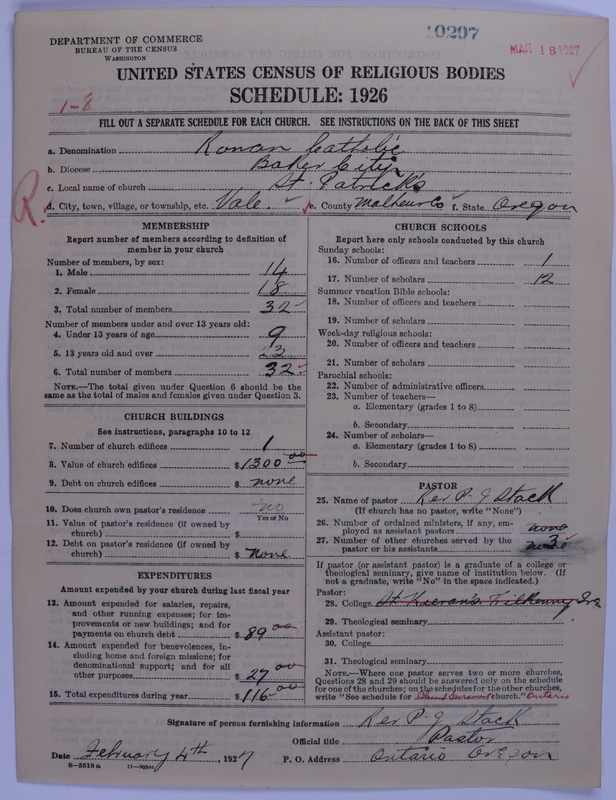 10297
MAR 18 1927
DEPARTMENT OF COMMERCE
BUREAU OF THE CENSUS
WASHINGTON
UNITED STATES CENSUS OF RELIGIOUS BODIES
1-8
SCHEDULE: 1926
FILL OUT A SEPARATE SCHEDULE FOR EACH CHURCH. SEE INSTRUCTIONS ON THE BACK OF THIS SHEET
a. Denomination Roman Catholic
b. Diocese Baker City
c. Local name of church St. Patrick's
R.
d. City, town, village, or township, etc. Vale. e. County Malheur Co f. State Oregon
MEMBERSHIP
Report number of members according to definition of
member in your church
Number of members, by sex:
1. Male 14
2. Female 18
3. Total number of members 32
Number of members under and over 13 years old:
4. Under 13 years of age 9
5. 13 years old and over 23
6. Total number of members 32
NOTE.—The total given under Question 6 should be the
same as the total of males and females given under Question 3.
CHURCH BUILDINGS
See instructions, paragraphs 10 to 12
7. Number of church edifices 1
8. Value of church edifices $1300 00
9. Debt on church edifices $ none
10. Does church own pastor's residence no
Yes or No
11. Value of pastor's residence (if owned by
church) $
12. Debt on pastor's residence (if owned by
church) $ none
EXPENDITURES
Amount expended by your church during last fiscal year
13. Amount expended for salaries, repairs,
and other running expenses; for im-
provements or new buildings; and for
payments on church debt $ 89 00
14. Amount expended for benevolences, in-
cluding home and foreign missions; for
denominational support; and for all
other purposes $ 27 00
15. Total expenditures during year $ 116 00
CHURCH SCHOOLS
Report here only schools conducted by this church
Sunday schools:
16. Number of officers and teachers 1
17. Number of scholars 12
Summer vacation Bible schools:
18. Number of officers and teachers
19. Number of scholars
Week-day religious schools:
20. Number of officers and teachers
21. Number of scholars
Parochial schools:
22. Number of administrative officers
23. Number of teachers—
a. Elementary (grades 1 to 8)
b. Secondary
24. Number of scholars—
a. Elementary (grades 1 to 8)
b. Secondary
PASTOR
25. Name of pastor Rev P. J Stack
(If church has no pastor, write "None")
26. Number of ordained ministers, if any, em-
ployed as assistant pastors none
27. Number of other churches served by the
pastor or his assistants 3
If pastor (or assistant pastor) is a graduate of a college or
theological seminary, give name of institution below. (If
not a graduate, write "No" in the space indicated.)
Pastor:
28. College St Kieran's Kilkenny Ire
29. Theological seminary
Assistant pastor:
30. College
31. Theological seminary
NOTE.—Where one pastor serves two or more churches,
Questions 28 and 29 should be answered only on the schedule
for one of the churches; on the schedules for the other churches,
write "See schedule for Blessed Sacrament church." Ontario
Signature of person furnishing information Rev P. J. Stack
Official title Pastor
Date February 4th, 1927 P. O. Address Ontario Oregon
8—5518a 11—20544